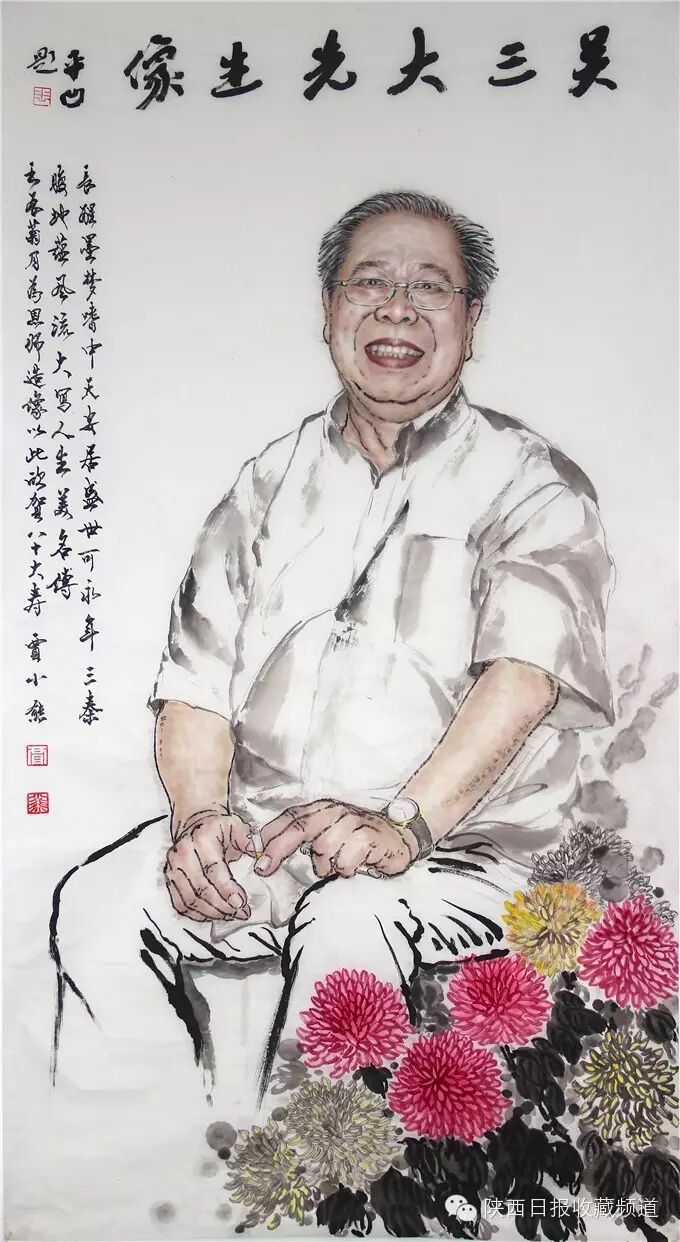 吴三大先生像
平凹
题
长醒墨梦中天安居盛世可永年三秦
腹地蕴风流大写人生美名传
壬辰菊月为恩师造像以此欣贺八十大寿 小
陕西日报收藏频道